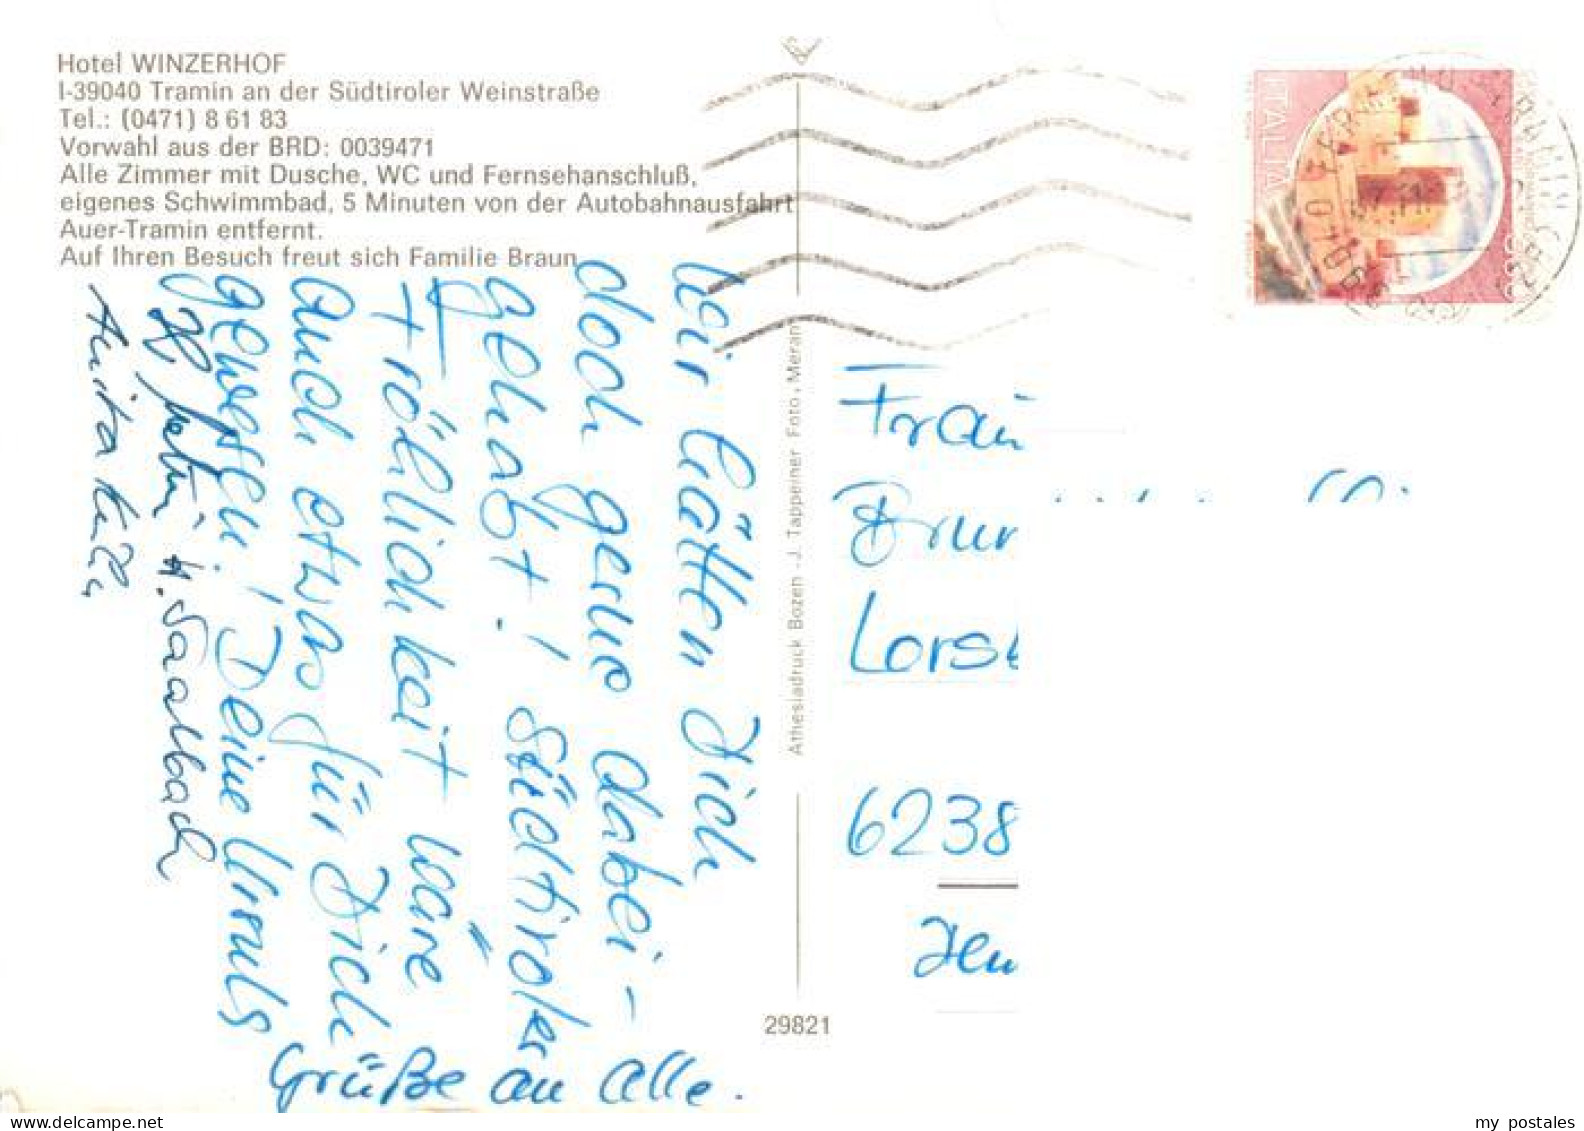 Hotel WINZERHOF
I-39040 Tramin an der Südtiroler Weinstraße
Tel.: (0471) 8 61 83
Vorwahl aus der BRD: 0039471
Alle Zimmer mit Dusche, WC und Fernsehanschluß,
eigenes Schwimmbad, 5 Minuten von der Autobahnausfahrt
Auer-Tramin entfernt.
Auf Ihren Besuch freut sich Familie Braun
Wir hätten Dich
doch gerne dabei-
gehabt! Südtiroler
Fröhlichkeit wäre
auch etwas für Dich
gewesen! Deine
H. Saalbach
Anita
Grüße an alle.
Athesiadruck Bozen - J. Tappeiner Foto, Meran
29821
ITALIA
Frau
Lors
6238
my postales